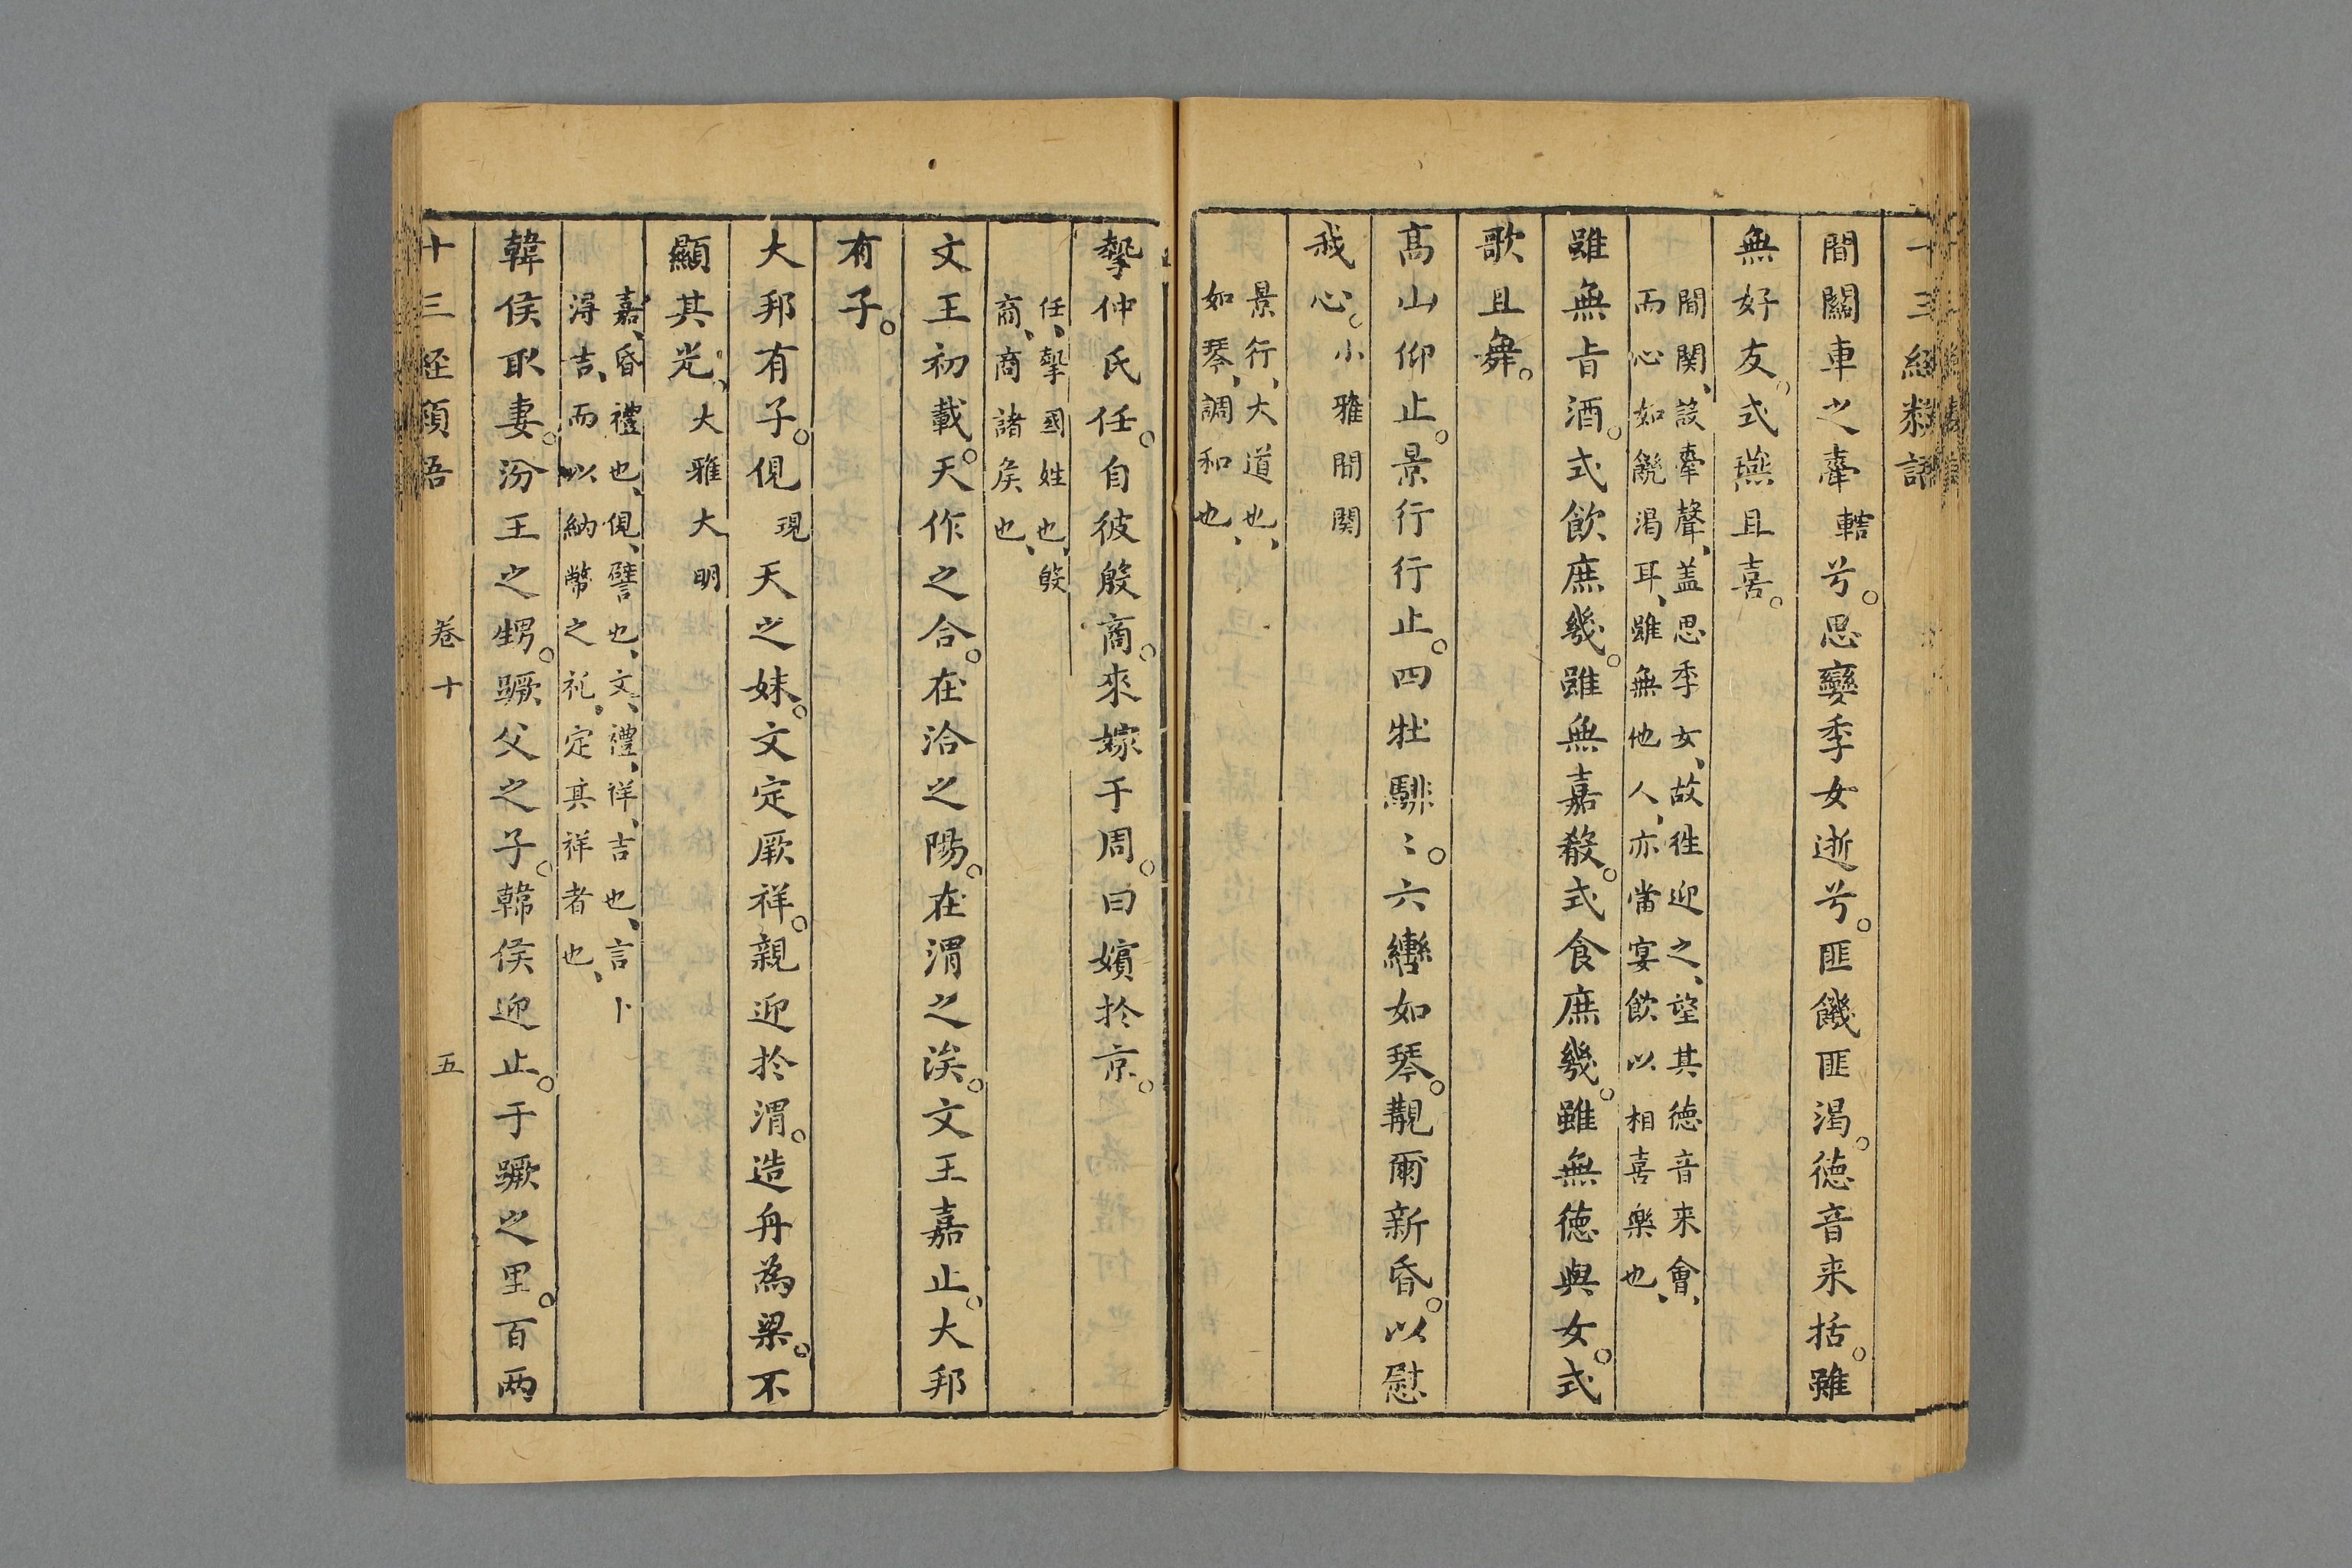 間關車之舝轄兮。思孌季女逝兮。匪饑匪渴。德音来括。雖
無好友。式燕且喜。
間関、設舝聲、盖思季女、故徃迎之、望其德音来會、
而心如饑渴耳、雖無他人、亦當宴飲以相喜樂也、
雖無㫖酒。式飲庶幾。雖無嘉殽。式食庶幾。雖無德與女。式
歌且舞。
高山仰止。景行行止。四牡騑〻。六轡如琴。覯爾新昏。以慰
我心。小雅間関
景行、大道也、
如琴、調和也、
摯仲氏任。自彼殷商。來嫁于周。曰嬪於京。
任、摯國姓也、殷
商、商諸矦也、
文王初載。天作之合。在洽之陽。在渭之涘。文王嘉止。大邦
有子。
大邦有子。俔現天之妹。文定厥祥。親迎於渭。造舟為梁。不
顯其光。大雅大明
嘉、昏禮也、俔、譬也、文、禮、祥、吉也、言卜
淂吉、而以納幣之礼、定其祥者也、
韓侯取妻。汾王之甥。蹶父之子。韓侯迎止。于蹶之里。百兩
十三經 卷十 五